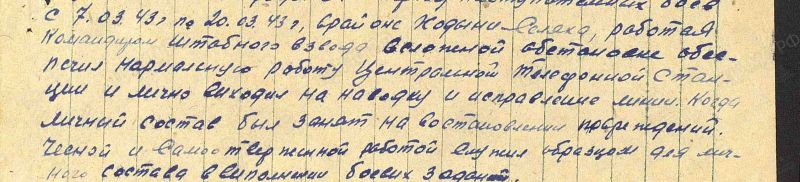 боев
с 7.03.43г по 20.03.43г, в районе Ходыни-, работая
Командиром штабного взвода в сложной обстановке обес-
печил нормальную роботу Центральной Телефонной Стан-
ции и лично виходил на наводку и исправление линии. Когда
личный состав был занят на востоновлении повреждений.
Чесной и Самоотверженной работой служил образцом для лич-
ного состава в виполнении боевих заданий.